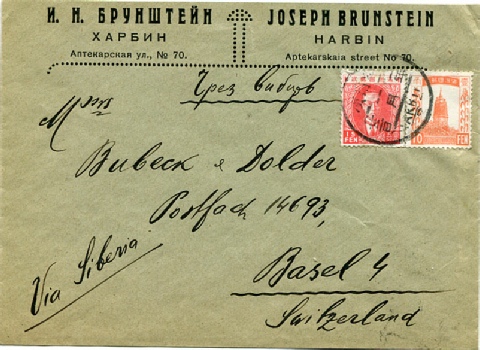 И. Н. БРУНШТЕЙН
ХАРБИН
Аптекарская ул., № 70.
JOSEPH BRUNSTEIN
HARBIN
Aptekarskaia street No 70.
Чрез Сибирь
Bubeck & Dolder
Postfach 14693,
Basel 4
Switzerland
Via Siberia
FEN
10 FEN